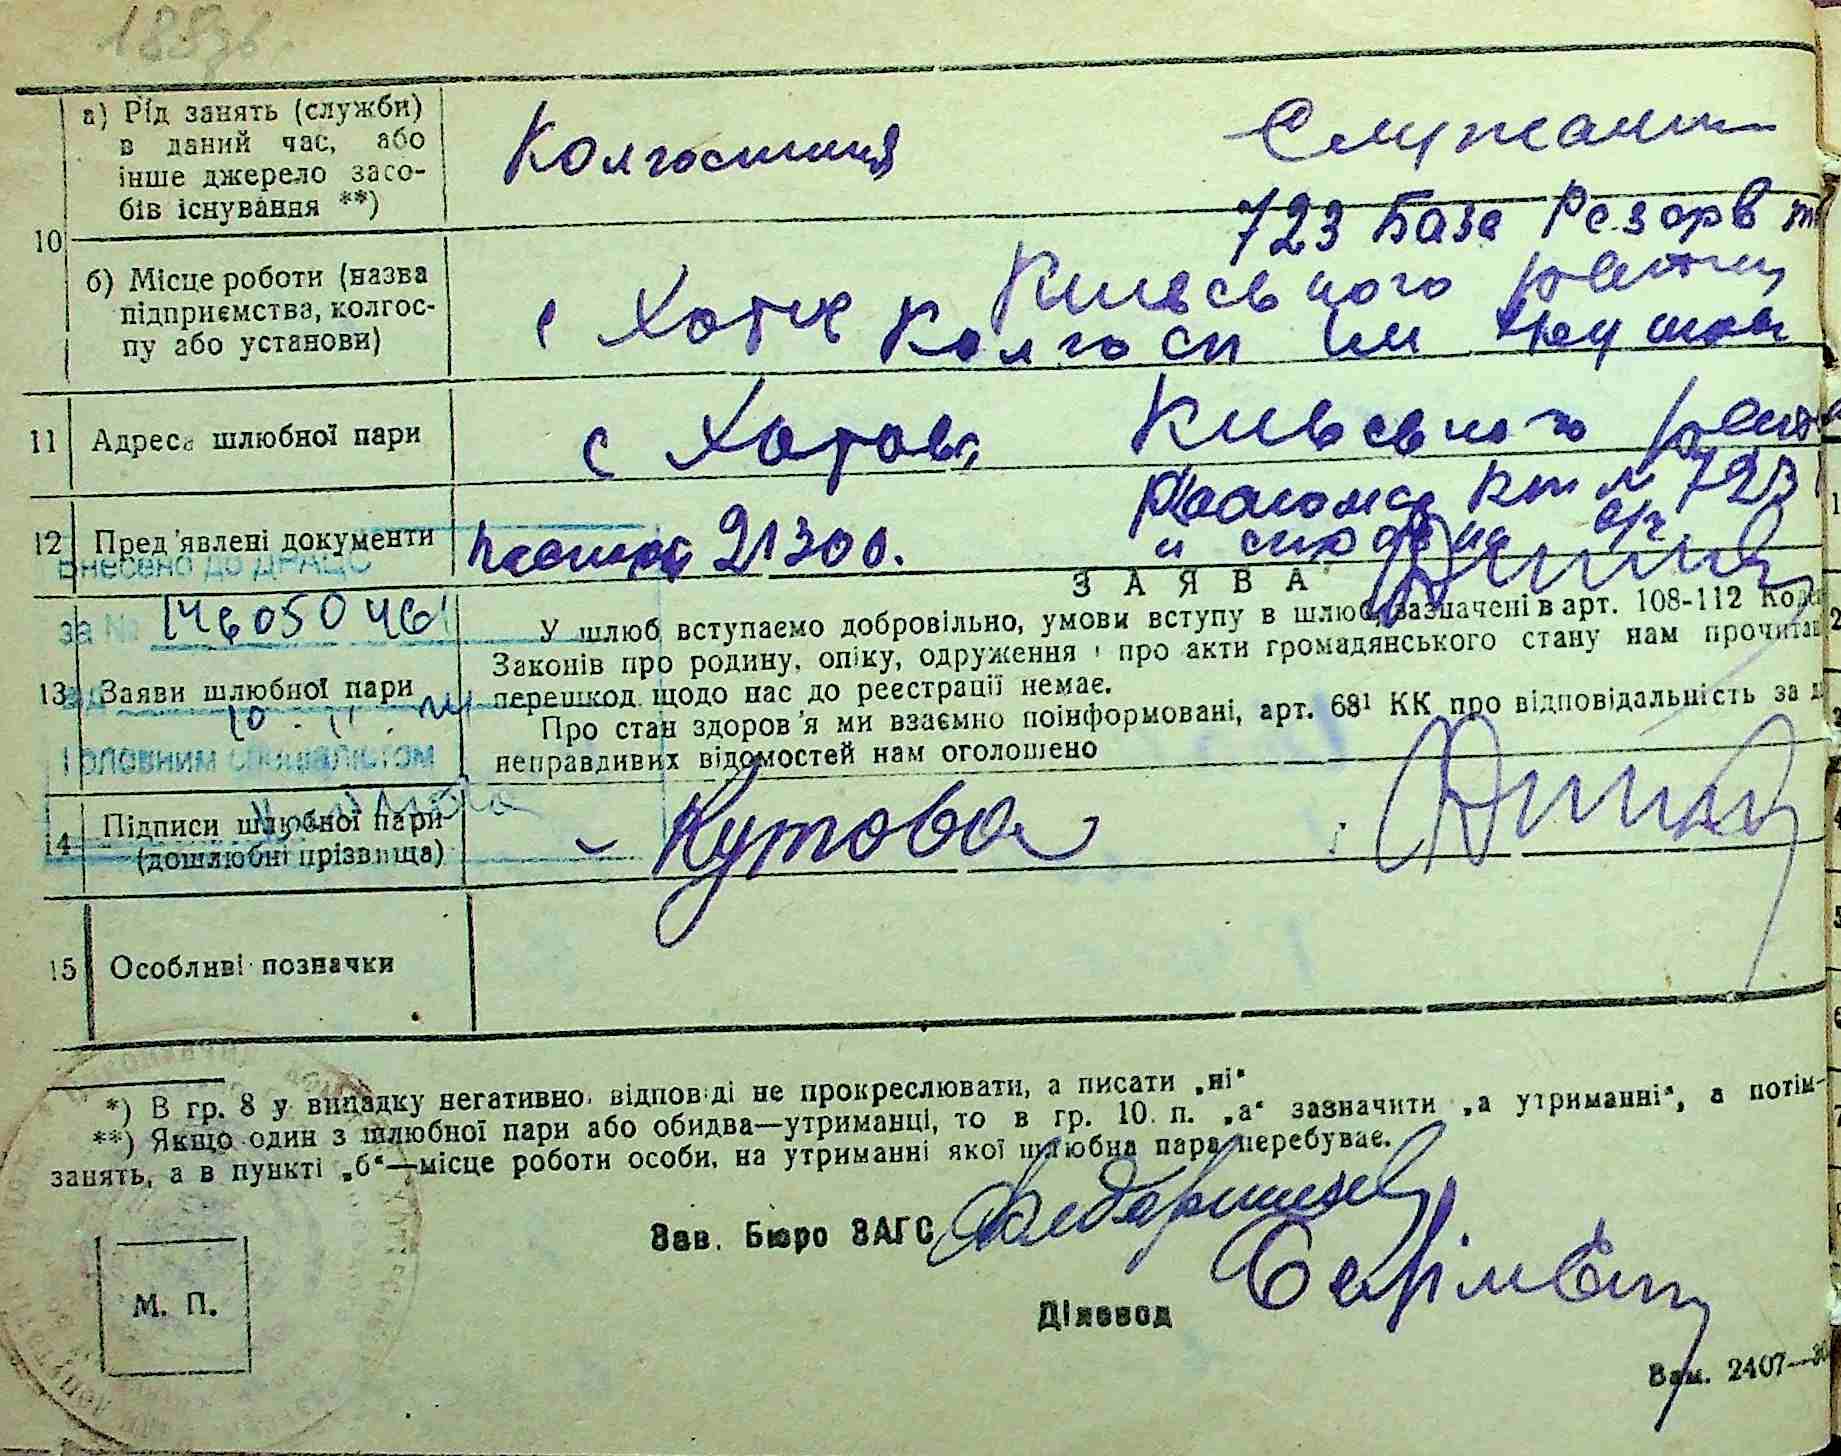 а) Рід занять (служби)
в даний час, або
інше джерело засо-
бів існування **)
Колгоспниця
Служащий
10
б) Місце роботи (назва
підприємства, колгос-
пу або установи)
723 База Резерв
с Хотів Київського району
Колгосп ім
11
Адреса шлюбної пари
с Хотов, Київського
12
Пред'явлені документи
21300.
723
Внесено до ДРАЦС
за № 14605046
З А Я В А
У шлюб вступаємо добровільно, умови вступу в шлюб зазначені в арт. 108-112
Законів про родину, опіку, одруження і про акти громадянського стану нам
перешкод щодо нас до реєстрації немає.
Про стан здоров'я ми взаємно поінформовані, арт. 68¹ КК про відповідальність за
неправдивих відомостей нам оголошено
13
Заяви шлюбної пари
10 11
Головним спеціалістом
14
Підписи шлюбної пари
(дошлюбні прізвища)
Кутова
15
Особливі позначки
*) В гр. 8 у випадку негативно. відповіді не прокреслювати, а писати „ні“
**) Якщо один з шлюбної пари або обидва—утриманці, то в гр. 10. п. „а“ зазначити „а утриманні“, а потім—
занять, а в пункті „б“—місце роботи особи, на утриманні якої шлюбна пара перебуває.
Зав. Бюро ЗАГС
Діловод
М. П.
Зам. 2407—